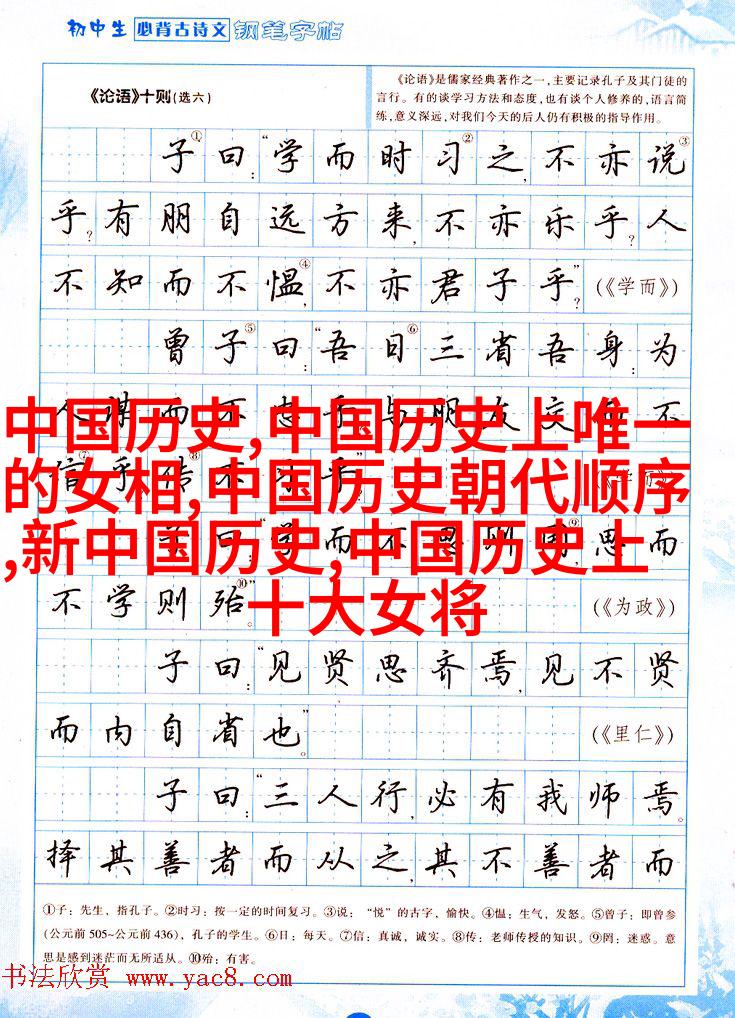 初中生 必背古诗文 钢笔字帖
《论语》十则(选六)
《论语》是儒家经典著作之一,主要记录孔子及其门徒的
言行。有的谈学习方法和态度,也有谈个人修养的,语言简
练,意义深远,对我们今天的后人仍有积极的指导作用。
子①曰:“学而时习②之,不亦说③
乎?有朋自远方来,不亦乐乎?人
不知而不愠④,不亦君子乎?”(《学而》)
曾子⑤曰:“吾日⑥三省吾身:为
人谋而不忠乎?与朋友交而不
中国历史,中国历史上唯一
的女相,中国历史朝代顺序
,新中国历史,中国历史上
十大女将
思而
不学则殆⑩。”(《为政》)
子曰:“见贤思齐焉,见不贤
而内自省也。”(《里仁》)
子曰:“三人行,必有我师焉。
择其善者而从之,其不善者而
①子:先生,指孔子。②时习:按一定的时间复习。③说:“悦”的古字,愉快。④愠:生气,发怒。⑤曾子:即曾参
(公元前505~公元前436),孔子的学生。⑥日:每天。⑦信:真诚,诚实。⑧传:老师传授的知识。⑨罔:迷惑。意
思是感到迷茫而无所适从。⑩殆:有害。
书法欣赏 www.yac8.com